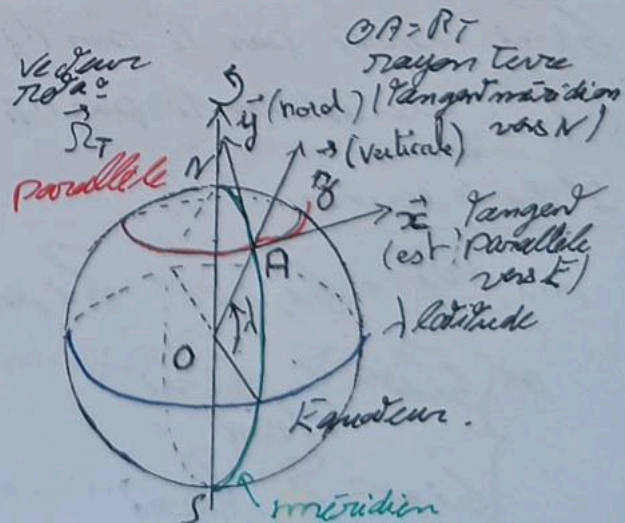 OA = RT
rayon terre
vecteur
rota°
Ω⃗T
y⃗ (nord) (tangent méridien
vers N)
z⃗ (verticale)
parallèle
N
x⃗ tangent
(est) parallèle
vers E)
A
λ
λ latitude
O
Equateur.
S
méridien